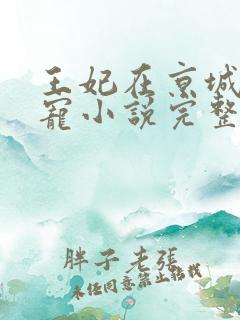 王妃在京城
寵小說完整
胖子老張
未任同意禁止轉載